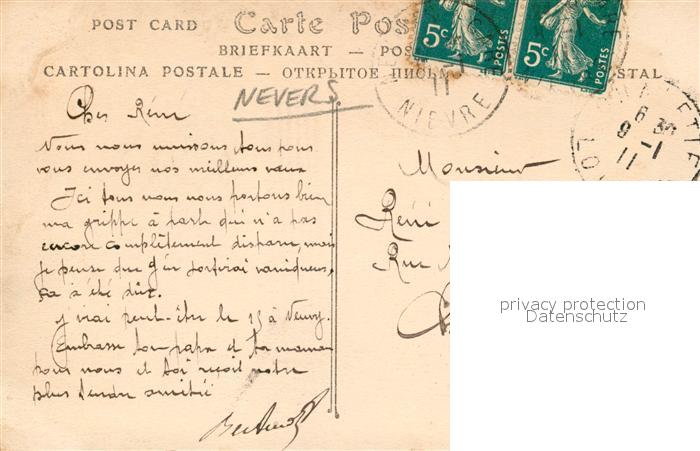 POST CARD Carte Pos
BRIEFKAART — POS
CARTOLINA POSTALE — ОТКРЫТОЕ ПИСЬМО STAL
5c POSTES
5c POSTES
NIEVRE
11
8 30
9 -1
11
NEVERS
Cher René
Nous nous unissons tous pour
vous envoyer nos meilleurs vœux
Ici tous nous nous portons bien
ma grippe à part qui n'a pas
encore complètement disparu, mais
je pense que j'en sortirai vainqueur,
ça a été dur.
J'irai peut-être le 15 à Neuvy.
Embrasse ton papa et ta maman
pour nous et toi reçois notre
plus tendre amitié
Monsieur
René
Rue
privacy protection
Datenschutz